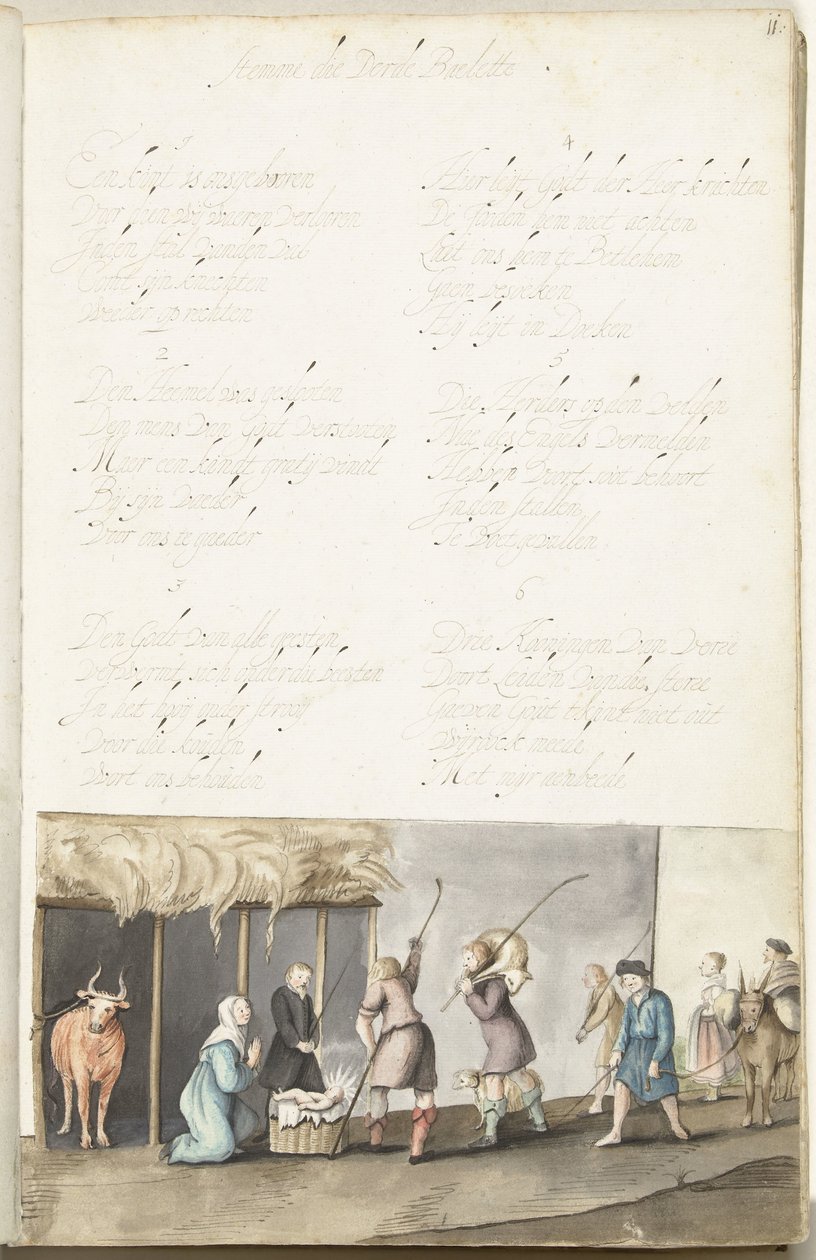 11.
Stemme die Derde Baelette
1
Een kint is ons gebooren
Door wij waeren verlooren
In den stal vanden
Comt sijn knechten
Weeder op rechten
2
Den Heemel was geslooten
Den mens van Godt verstooten
Maer een kindt gratij vindt
Bij sijn vaeder
Voor ons te gaeder
3
Den Godt van alle geesten
Verwermt sich onder die beesten
In het hooij onder strooij
Voor die kouden
Wort ons behouden
4
Hier leijt Godt der Heer krachten
De Jooden hem niet achten
Laet ons hem te Betlehem
Gaen besoeken
Hij leijt in Doeken
5
Die Herders op den velden
Nae des Engels vermelden
Hebben voort soot behoort
In den stallen
Te voet gevallen
6
Drie Kooningen van veree
Doort Leiden van die steree
Gaeven Gout t'kint niet out
Wijrook meede
Met mijr aenbeede